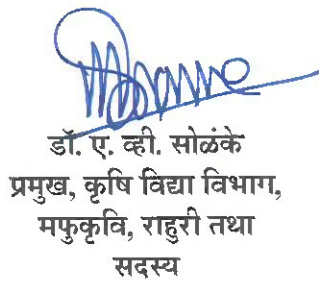 डॉ. ए. व्ही. सोळंके
प्रमुख, कृषि विद्या विभाग,
मफुकृवि, राहुरी तथा
सदस्य